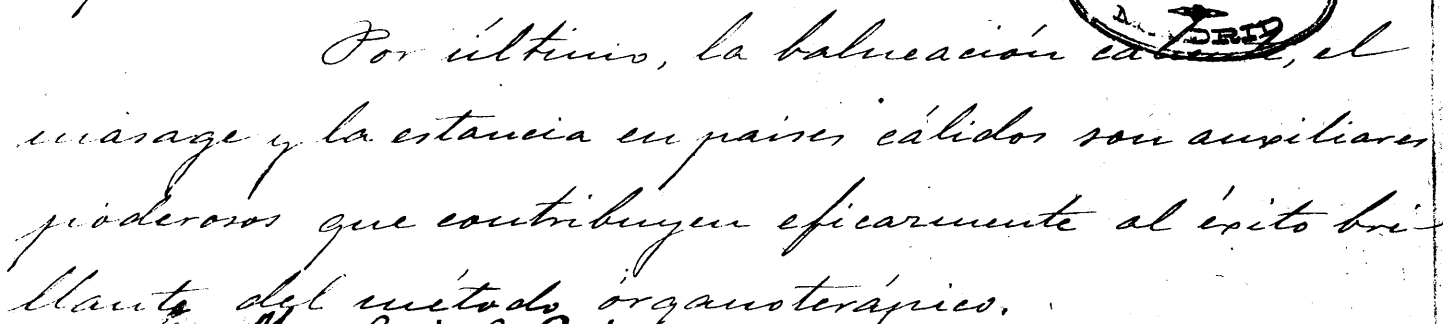 DRID
Por último, la balneación caliente, el
másage y la estancia en paises cálidos son auxiliares
poderosos que contribuyen eficazmente al éxito bri-
llante del método órganoterápico.